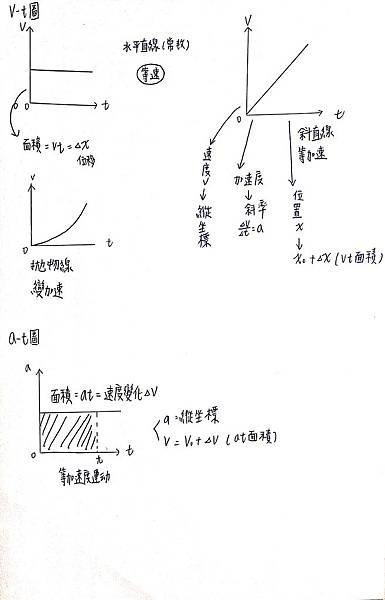 V-t圖
V
0
t
水平直線(常數)
等速
面積=vt=△x
位移
V
0
t
斜直線
等加速
速度V→縱坐標
加速度→斜率
△v/△t=a
位置x
→x₀+△x(vt面積)
v
0
t
拋物線
變加速
a-t圖
a
面積=at=速度變化△V
0
t
t
等加速度運动
a=縱坐標
V=V₀+△V(at面積)